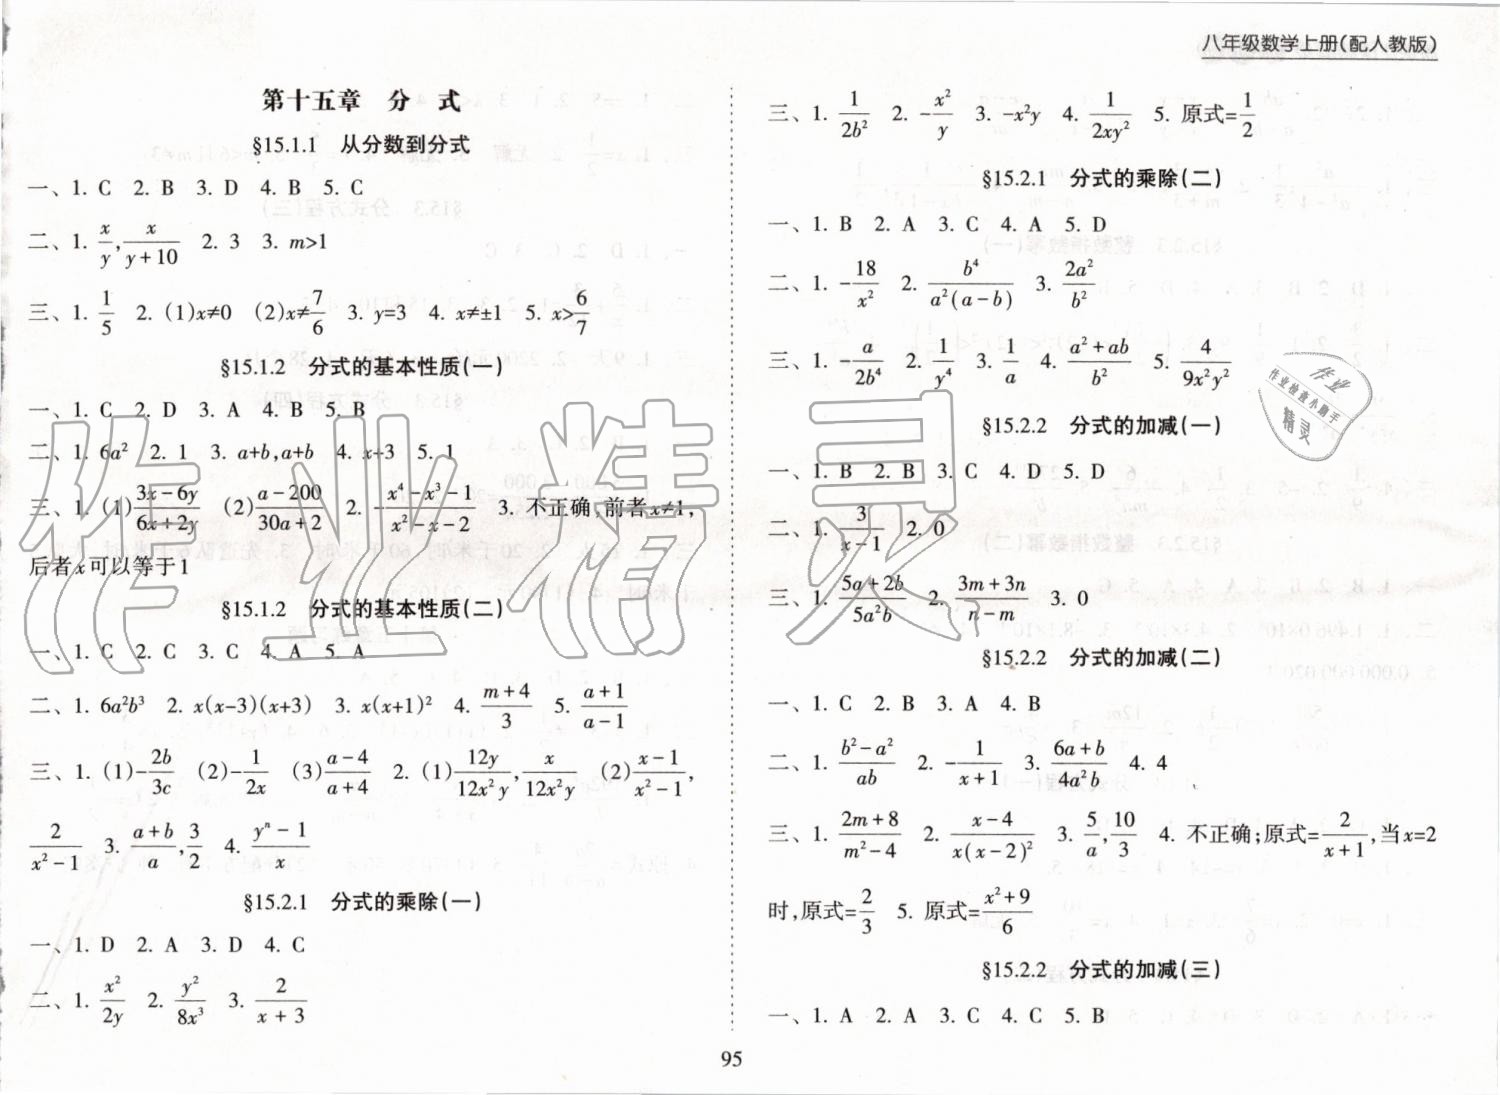 八年级数学上册(配人教版)
第十五章 分 式
§15.1.1 从分数到分式
一、1. C 2. B 3. D 4. B 5. C
二、1. x/y, x/(y+10) 2. 3 3. m>1
三、1. 1/5 2. (1)x≠0 (2)x≠7/6 3. y=3 4. x≠±1 5. x>6/7
§15.1.2 分式的基本性质(一)
一、1. C 2. D 3. A 4. B 5. B
二、1. 6a² 2. 1 3. a+b,a+b 4. x+3 5. 1
三、1. (1)(3x-6y)/(6x+2y) (2)(a-200)/(30a+2) 2. -(x⁴-x³-1)/(x²-x-2) 3. 不正确,前者x≠1,
后者x可以等于1
§15.1.2 分式的基本性质(二)
一、1. C 2. C 3. C 4. A 5. A
二、1. 6a²b³ 2. x(x-3)(x+3) 3. x(x+1)² 4. (m+4)/3 5. (a+1)/(a-1)
三、1. (1)-2b/3c (2)-1/2x (3)(a-4)/(a+4) 2. (1)12y/12x²y, x/12x²y (2)(x-1)/(x²-1),
2/(x²-1) 3. (a+b)/a, 3/2 4. (yⁿ-1)/x
§15.2.1 分式的乘除(一)
一、1. D 2. A 3. D 4. C
二、1. x²/2y 2. y²/8x³ 3. 2/(x+3)
三、1. 1/2b² 2. -x²/y 3. -x²y 4. 1/2xy² 5. 原式=1/2
§15.2.1 分式的乘除(二)
一、1. B 2. A 3. C 4. A 5. D
二、1. -18/x² 2. b⁴/a²(a-b) 3. 2a²/b²
三、1. -a/2b⁴ 2. 1/y⁴ 3. 1/a 4. (a²+ab)/b² 5. 4/9x²y²
§15.2.2 分式的加减(一)
一、1. B 2. B 3. C 4. D 5. D
二、1. 3/(x-1) 2. 0
三、1. (5a+2b)/5a²b 2. (3m+3n)/(n-m) 3. 0
§15.2.2 分式的加减(二)
一、1. C 2. B 3. A 4. B
二、1. (b²-a²)/ab 2. -1/(x+1) 3. (6a+b)/4a²b 4. 4
三、1. (2m+8)/(m²-4) 2. (x-4)/x(x-2)² 3. 5/a, 10/3 4. 不正确;原式=2/(x+1),当x=2
时,原式=2/3 5. 原式=(x²+9)/6
§15.2.2 分式的加减(三)
一、1. A 2. A 3. C 4. C 5. B
95
作业精灵
作业
作业检查小助手
精灵